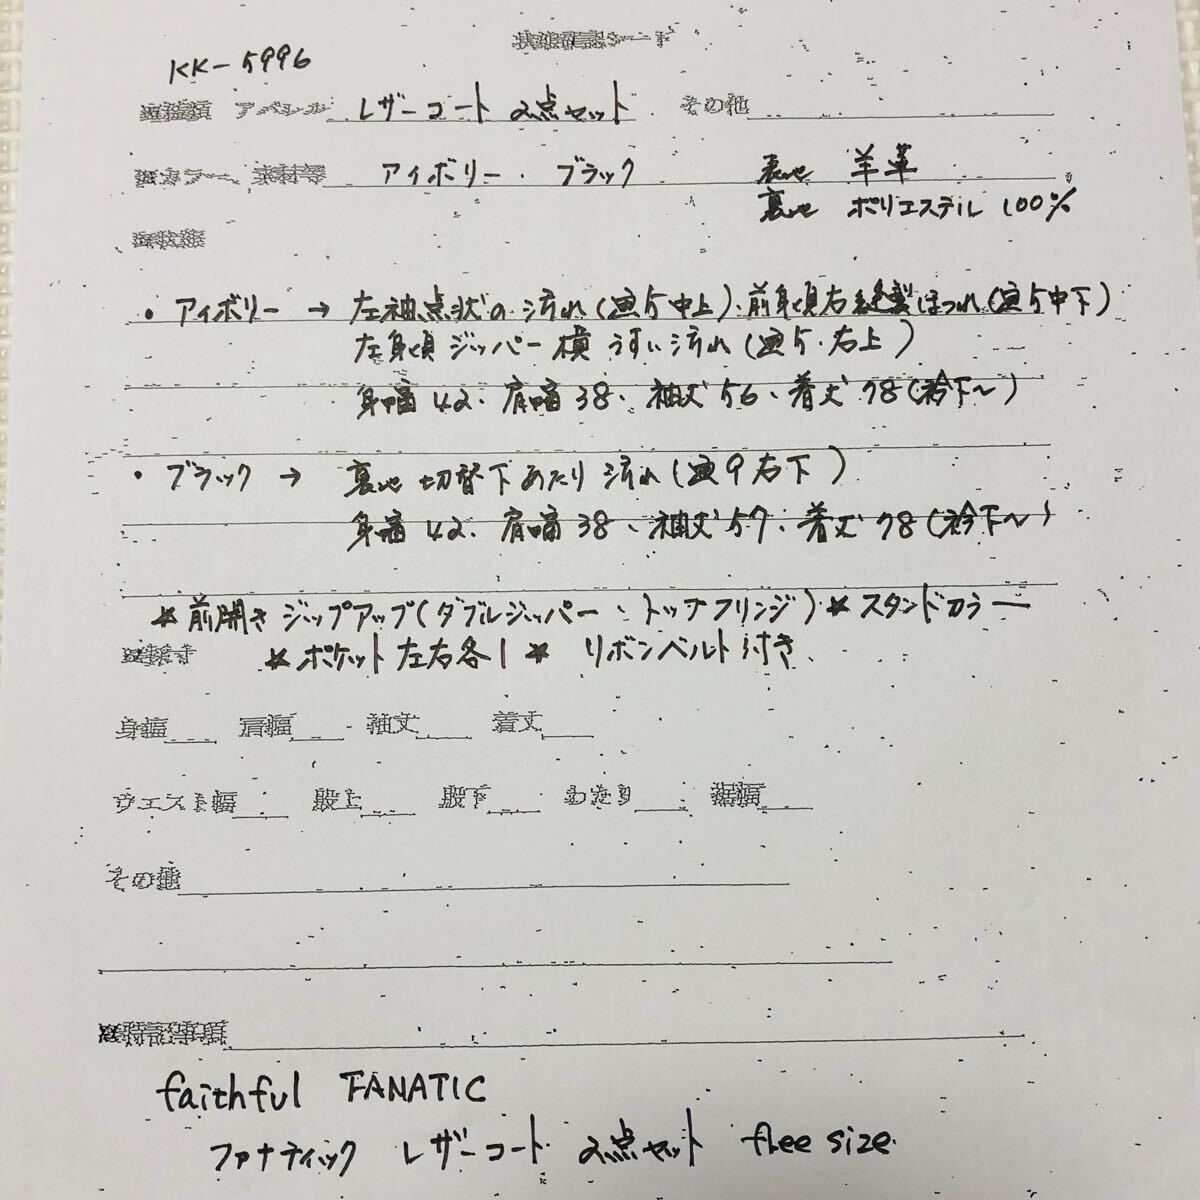 状態確認シート
KK-5996
アパレル レザーコート 2点セット その他
カラー 素材等 アイボリー・ブラック 表地 羊革
裏地 ポリエステル 100%
状態
・アイボリー → 左袖点状の汚れ(画5中上)・前身頃右縫製ほつれ(画5中下)
左身頃ジッパー横うすい汚れ(画5・右上)
身幅42、肩幅38、袖丈56、着丈78(衿下〜)
・ブラック → 裏地切替下あたり汚れ(画9右下)
身幅42、肩幅38、袖丈57、着丈78(衿下〜)
★前開きジップアップ(ダブルジッパー・トップフリンジ)★スタンドカラー
採寸 ★ポケット左右各1★ リボンベルト付き、
身幅 肩幅 袖丈 着丈
ウエスト幅 股上 股下 わたり 裾幅
その他
特記事項
faithful FANATIC
ファナティック レザーコート 2点セット free size